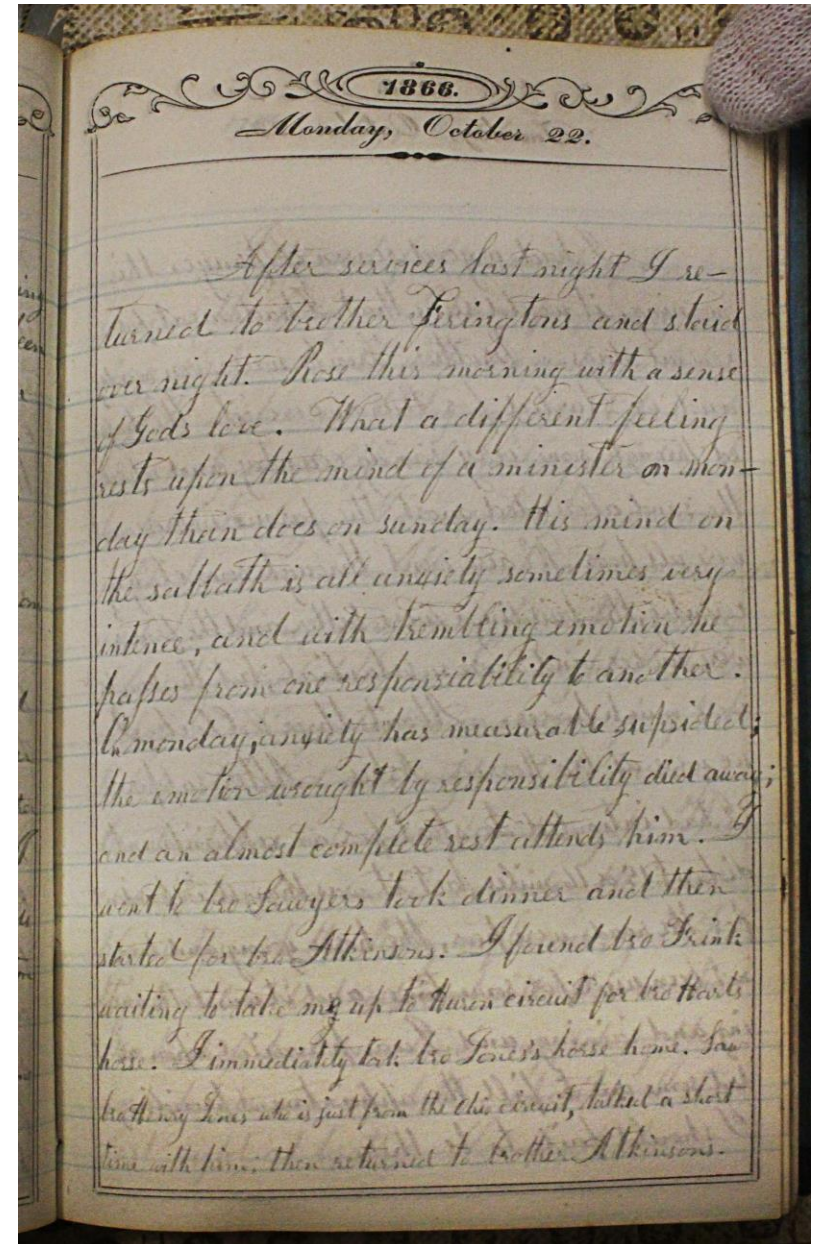 1866.
Monday, October 22.
After services last night I re-
turned to brother Feringtons and staid
over night. Rose this morning with a sense
of Gods love. What a different feeling
rests upon the mind of a minister on mon-
day than does on sunday. His mind on
the sabbath is all anxiety sometimes very
intence, and with trembling emotion he
passes from one responsiability to another.
On monday, anxiety has measurable supsided;
the emotion wrought by responsibility died away;
and an almost complete rest attends him. I
went to bro Sawyers took dinner and then
started for bro Atkinsons. I found bro Frink
waiting to take me up to Huron circuit for bro Harts
horse. I immediatity took bro Jones's horse home. Saw
bro Henry Jones who is just from the Ohio circuit, talked a short
time with him, then returned to brother Atkinsons.